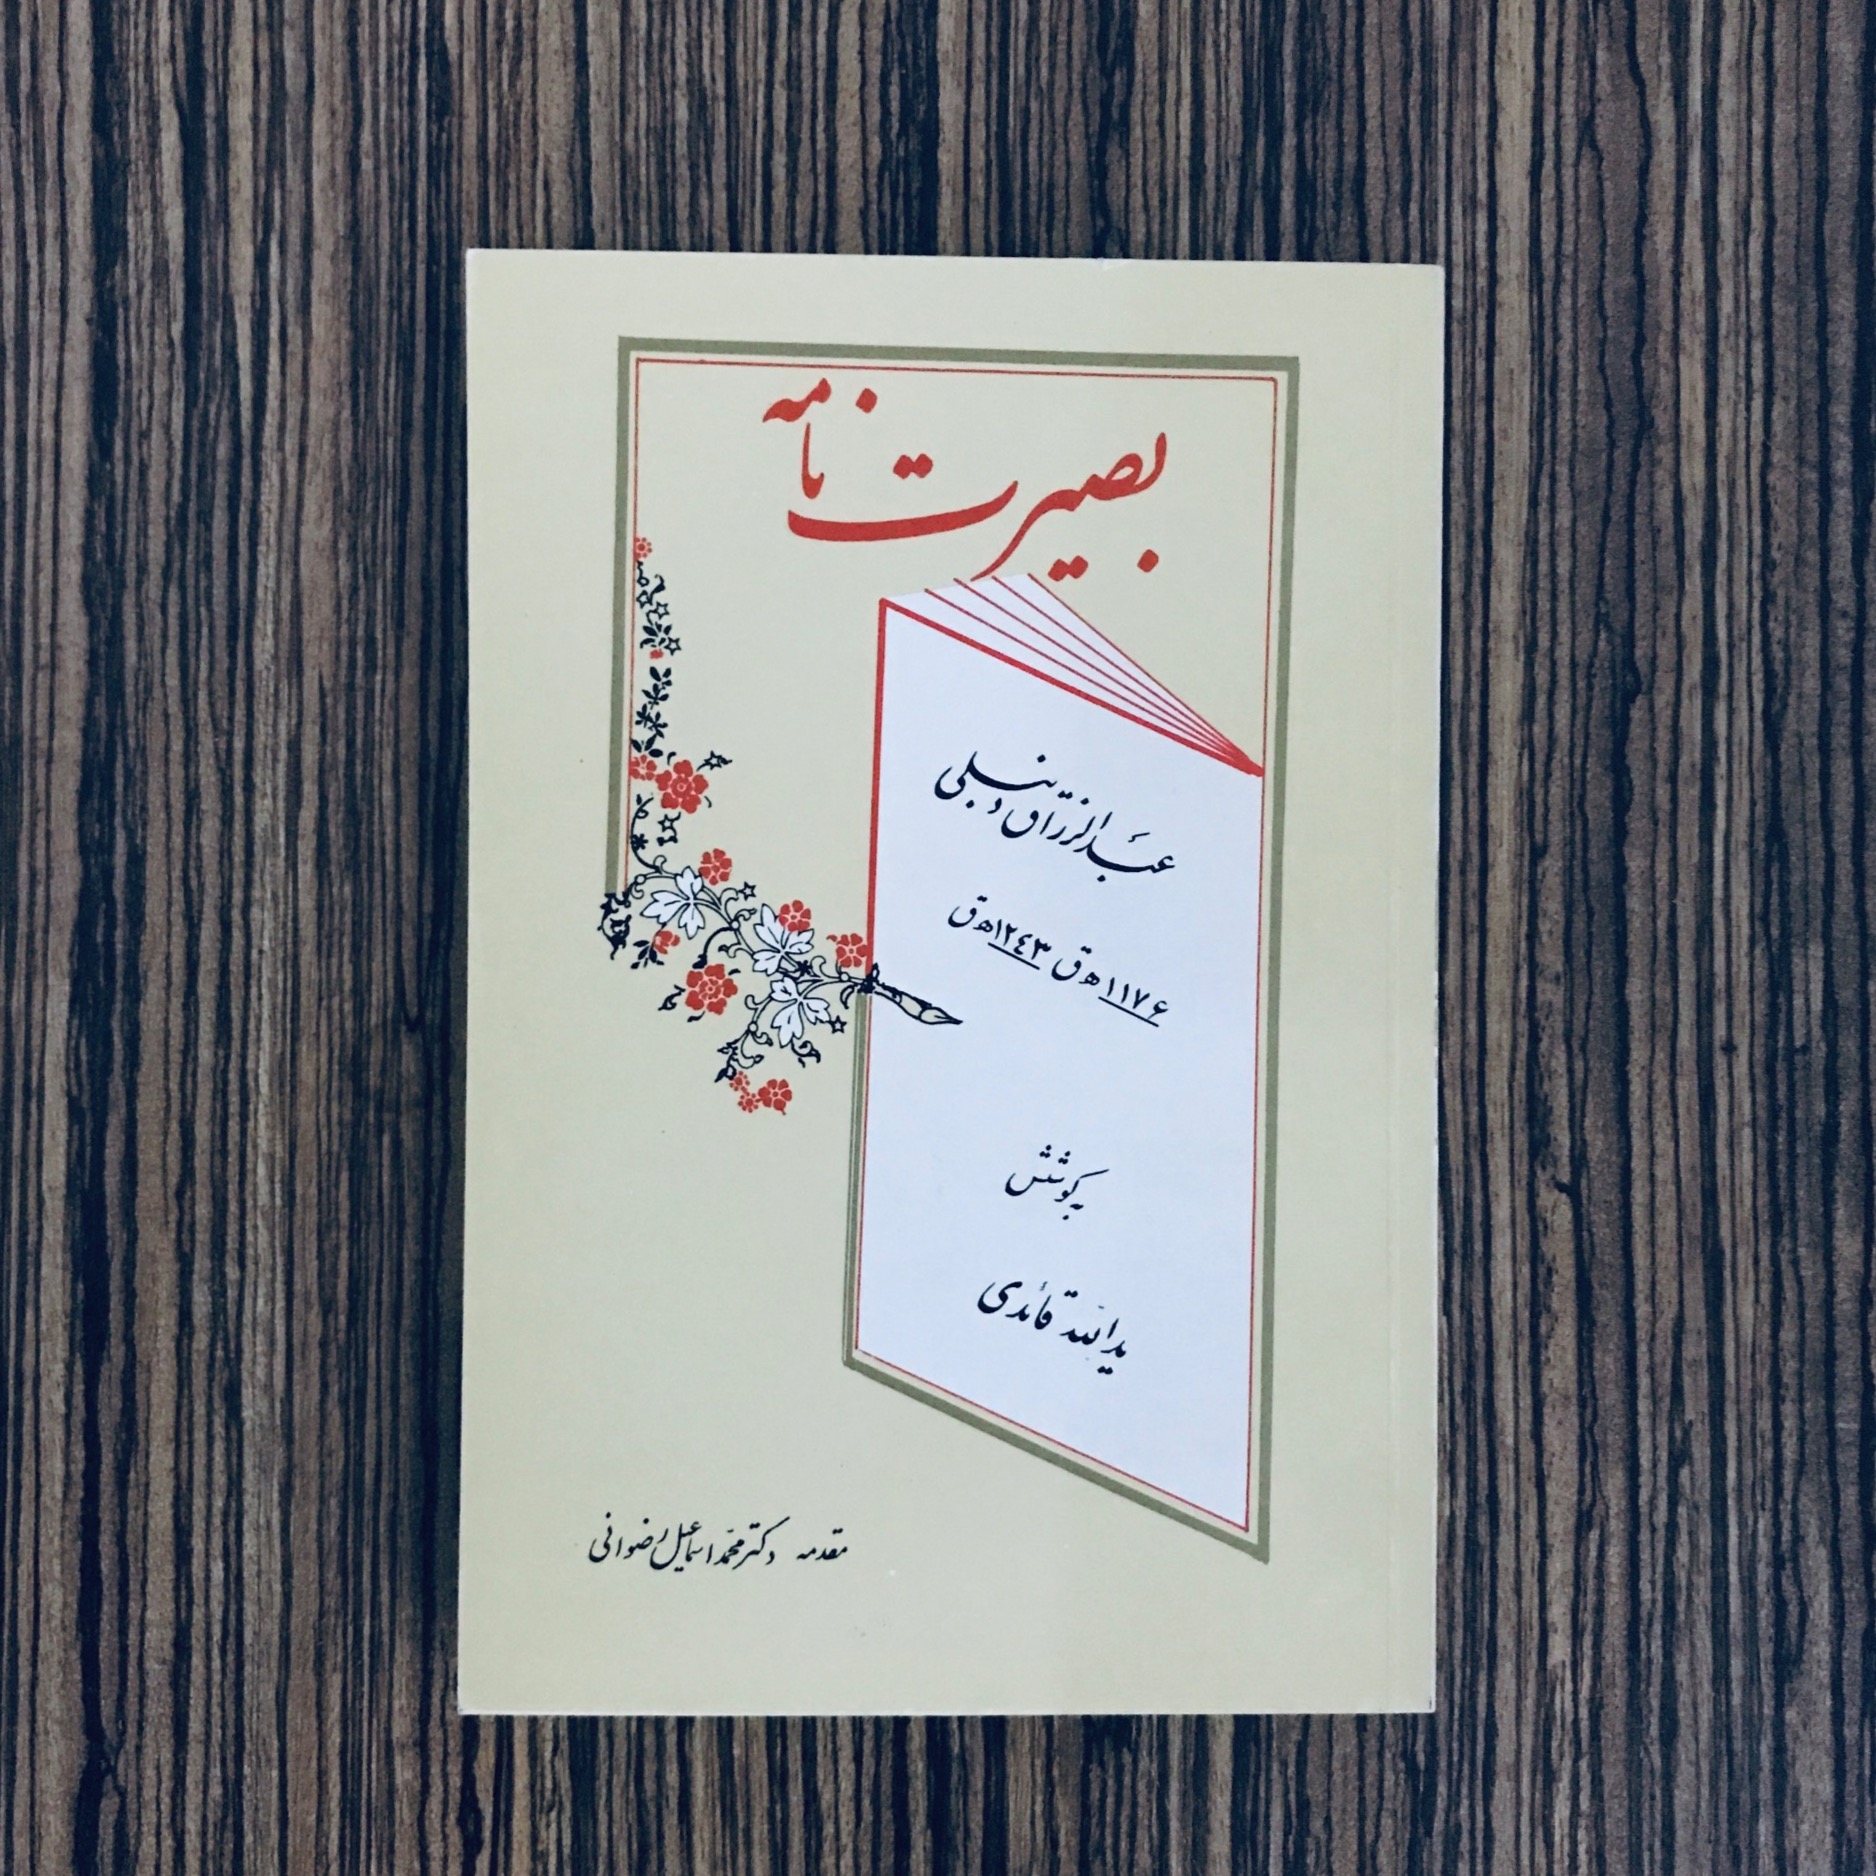 بصیرت نامه
عبدالرزاق دنبلی
۱۱۷۶ ه‍ ق ۱۲۴۳ ه‍ ق
به کوشش
یدالله قائدی
مقدمه دکتر محمد اسماعیل رضوانی